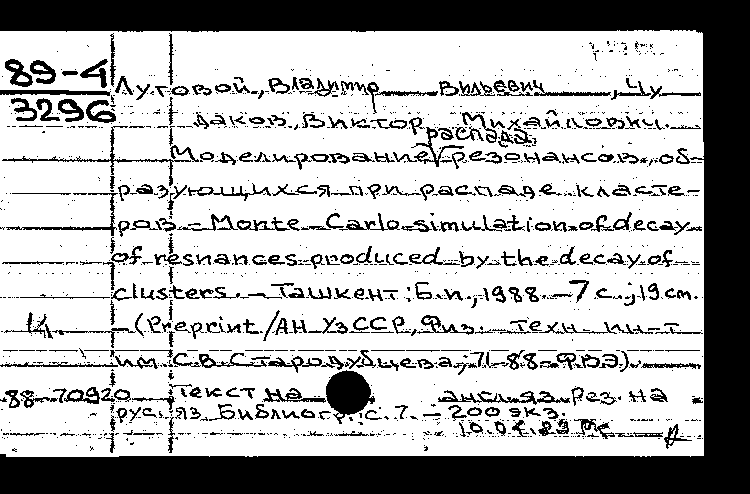 89-4
3296
Луговой, Владимир Вильевич, Чу
даков, Виктор Михайлович.
распада
Моделирование резонансов, об-
разующихся при распаде класте-
ров - Monte-Carlo simulation of decay
of resnances produced by the decay of
clusters. - Ташкент: Б.и., 1988. - 7 с.; 19 см.
- (Preprint / АН УзССР, Физ. техн. ин-т
им С.В. Стародубцева; 71-88-ФВЭ).
88-70920 Текст на англ. яз. Рез. на
рус. яз. Библиогр.: с. 7. - 200 экз.